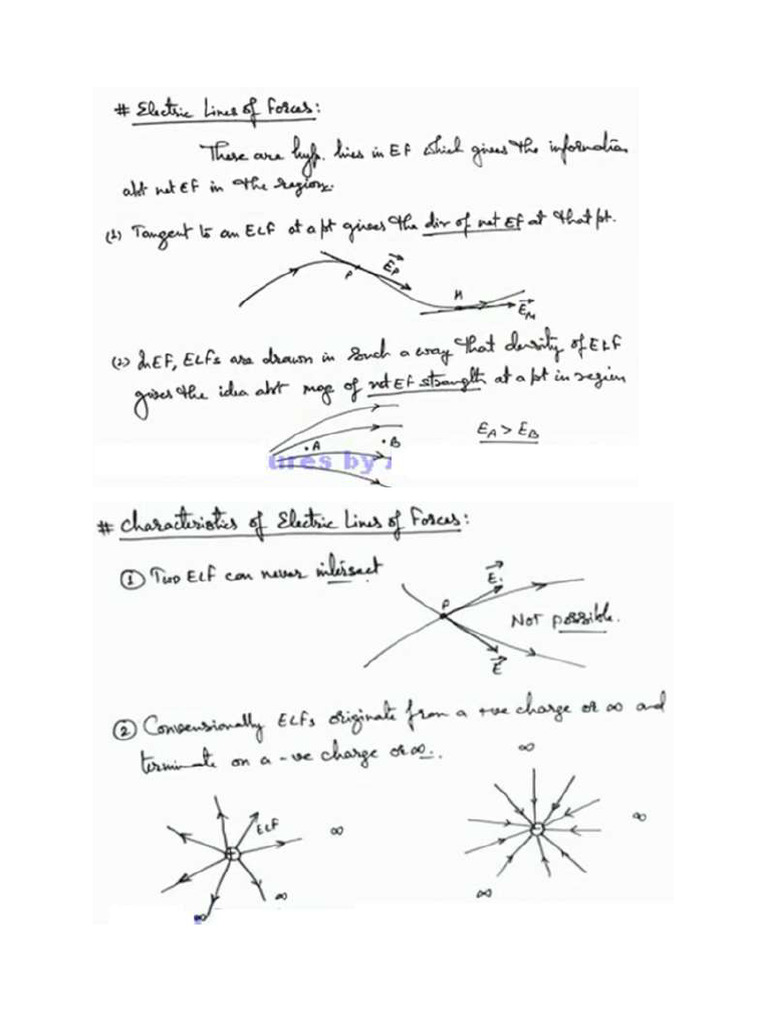 # Electric Lines of Forces:
These are hyp. lines in EF which gives the information
abt net EF in the region.
(1) Tangent to an ELF at a pt gives the dir of net EF at that pt.
P
E⃗P
M
E⃗M
(2) In EF, ELFs are drawn in such a way that density of ELF
gives the idea abt mag of net EF strength at a pt in region
•A
•B
EA > EB
ures by
# Characteristics of Electric Lines of Forces:
① Two ELF can never intersect
E⃗
P
NOT possible.
E⃗
② Convensionally ELFs originate from a +ve charge or ∞ and
terminate on a -ve charge or ∞.
∞
ELF
∞
∞
+
−
∞
∞
∞